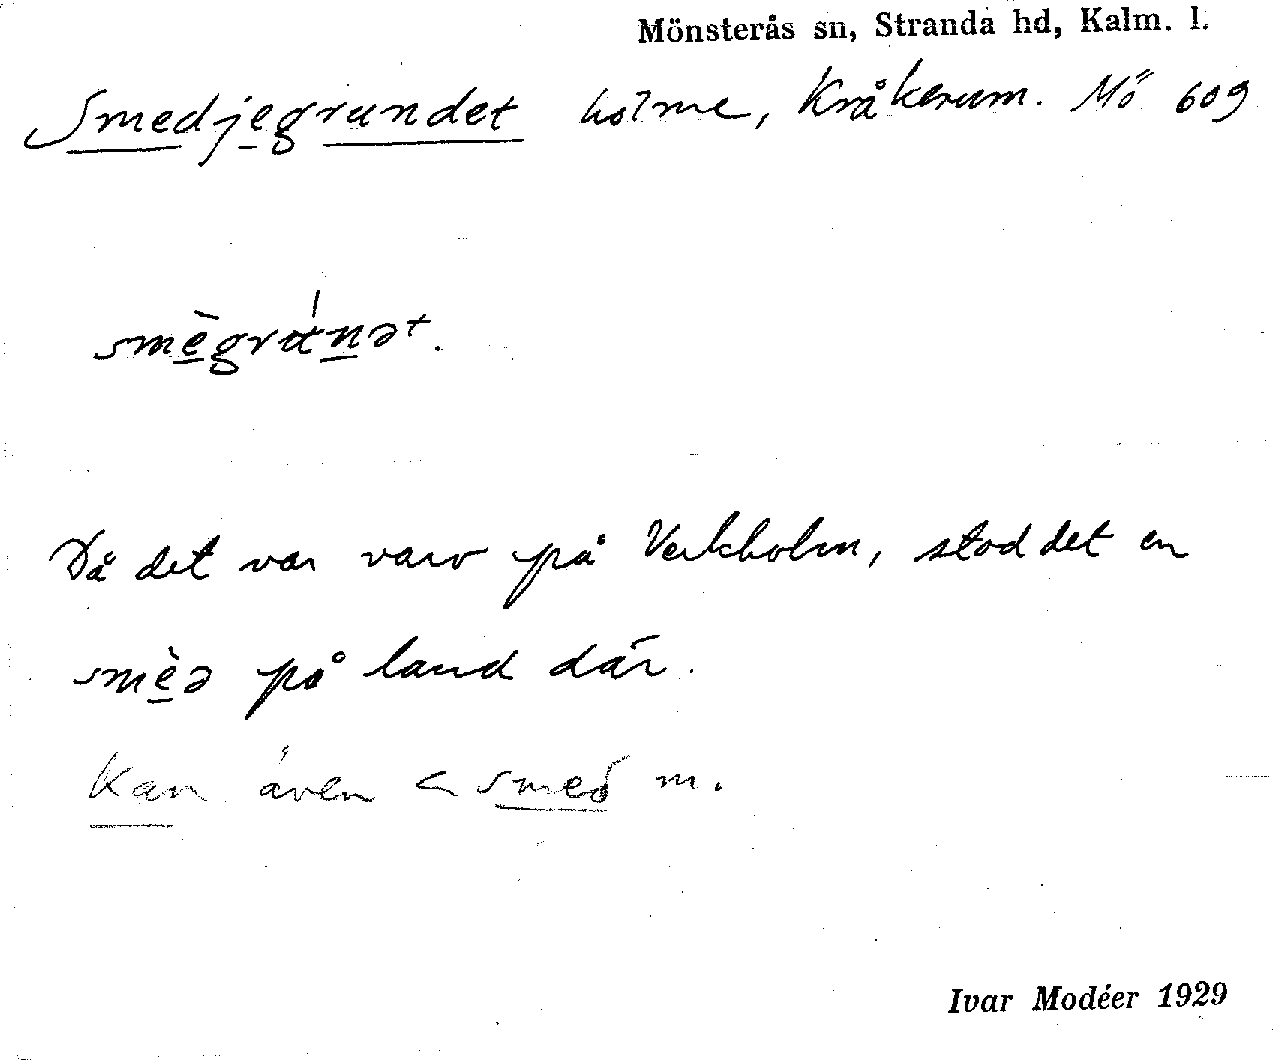 Mönsterås sn, Stranda hd, Kalm. l.
Smedjegrundet holme, Kråkerum. Mö 609
smègránət.
Då det var varv på Verkholm, stod det en
smèə på land där.
Kan även < smed m.
Ivar Modéer 1929